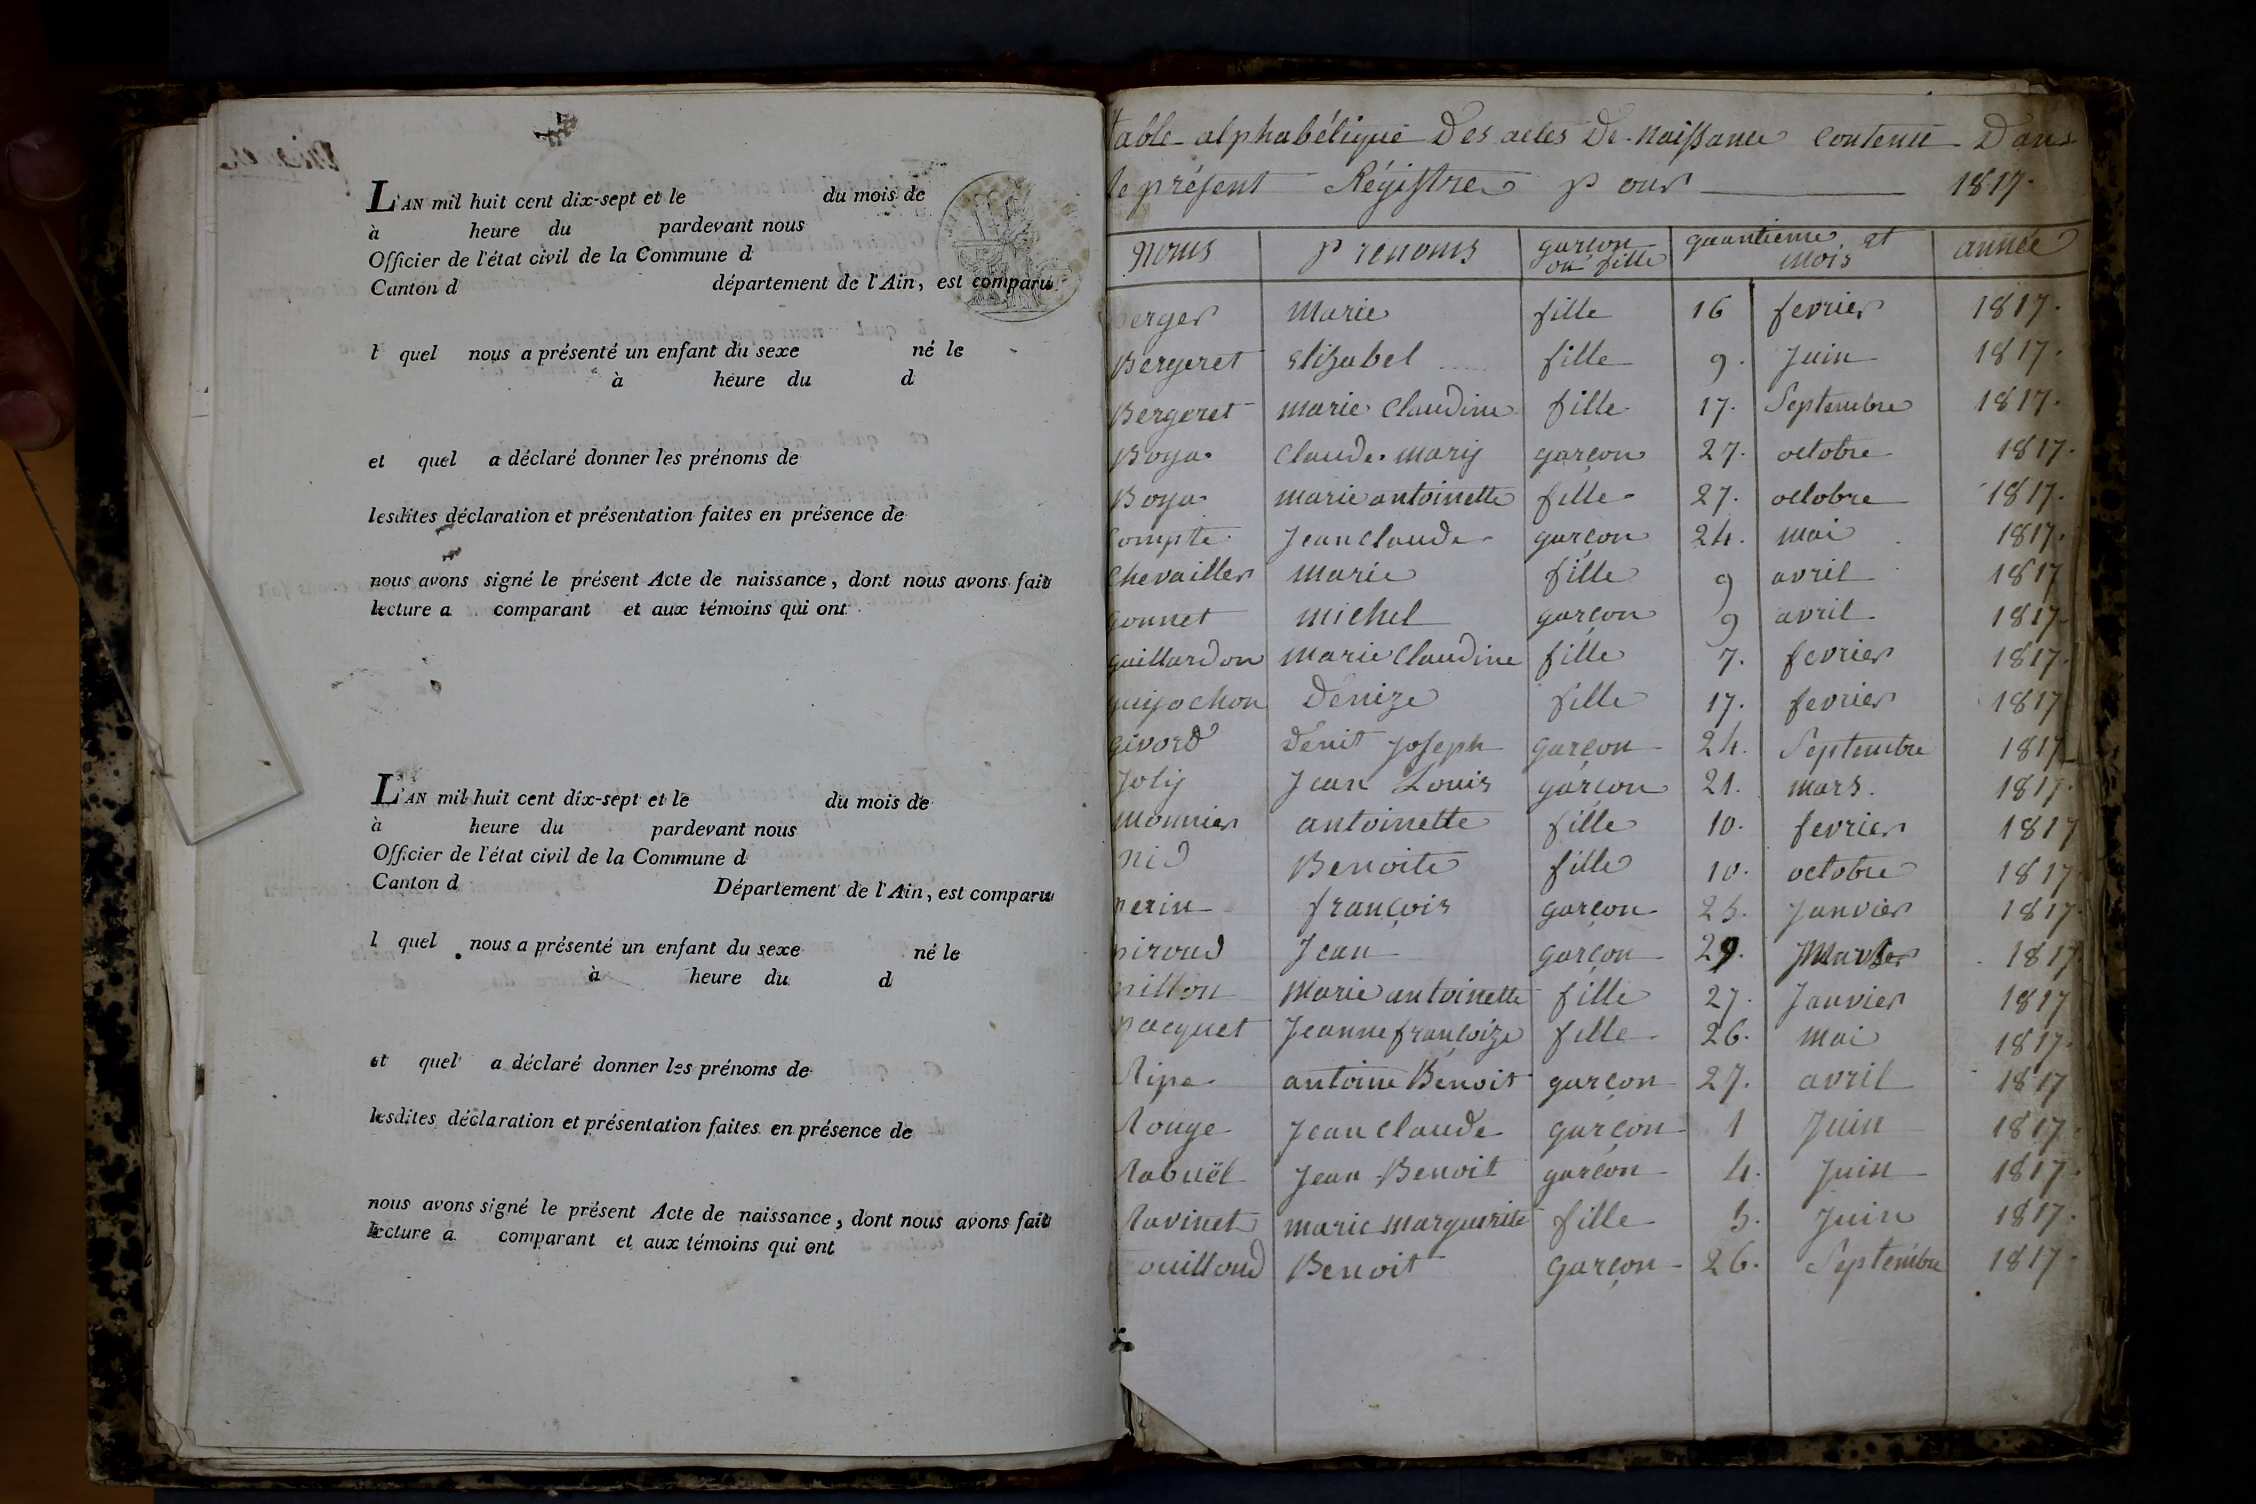 L'AN mil huit cent dix-sept et le du mois de
à heure du pardevant nous
Officier de l'état civil de la Commune d
Canton d département de l'Ain, est comparu
l quel nous a présenté un enfant du sexe né le
à heure du d
et quel a déclaré donner les prénoms de
lesdites déclaration et présentation faites en présence de
nous avons signé le présent Acte de naissance, dont nous avons fait
lecture a comparant et aux témoins qui ont
L'AN mil huit cent dix-sept et le du mois de
à heure du pardevant nous
Officier de l'état civil de la Commune d
Canton d Département de l'Ain, est comparu
l quel nous a présenté un enfant du sexe né le
à heure du d
et quel a déclaré donner les prénoms de
lesdites déclaration et présentation faites en présence de
nous avons signé le présent Acte de naissance, dont nous avons fait
lecture a comparant et aux témoins qui ont
table alphabétique Des actes De Naissance contenu Dans
le présent Régistre pour 1817.
Noms Prenoms garçon ou fille quantieme et mois année
Berger Marie fille 16 fevrier 1817.
Bergeret Elizabet fille 9. Juin 1817.
Bergeret marie Claudine fille 17. Septembre 1817.
Boya. Claude. mary garçon 27. octobre 1817.
Boya. marie antoinette fille 27. octobre 1817.
Compte. Jean Claude garçon 24. mai 1817.
Chevailler marie fille 9 avril 1817
gonnet michel garçon 9 avril 1817.
guillardon marie Claudine fille 7. fevrier 1817.
guijochon Dénize fille 17. fevrier 1817
givord Dénit Joseph garçon 24. Septembre 1817
Joly Jean Louis garçon 21. mars. 1817.
monnier antoinette fille 10. fevrier 1817
nid Benoite fille 10. octobre 1817
perin françois garçon 25. Janvier 1817.
piroud Jean garçon 29. 1817
pillon Marie antoinette fille 27. Janvier 1817
pacquet Jeanne françoize fille 26. mai 1817.
Ripe antoine Benoit garçon 27. avril 1817
Rouge Jean Claude garçon 1 Juin 1817.
Rabuël Jean Benoit garçon 4. Juin 1817.
Ravinet marie marguerite fille 5. Juin 1817.
ouilloud Benoit Garçon 26. Septembre 1817.